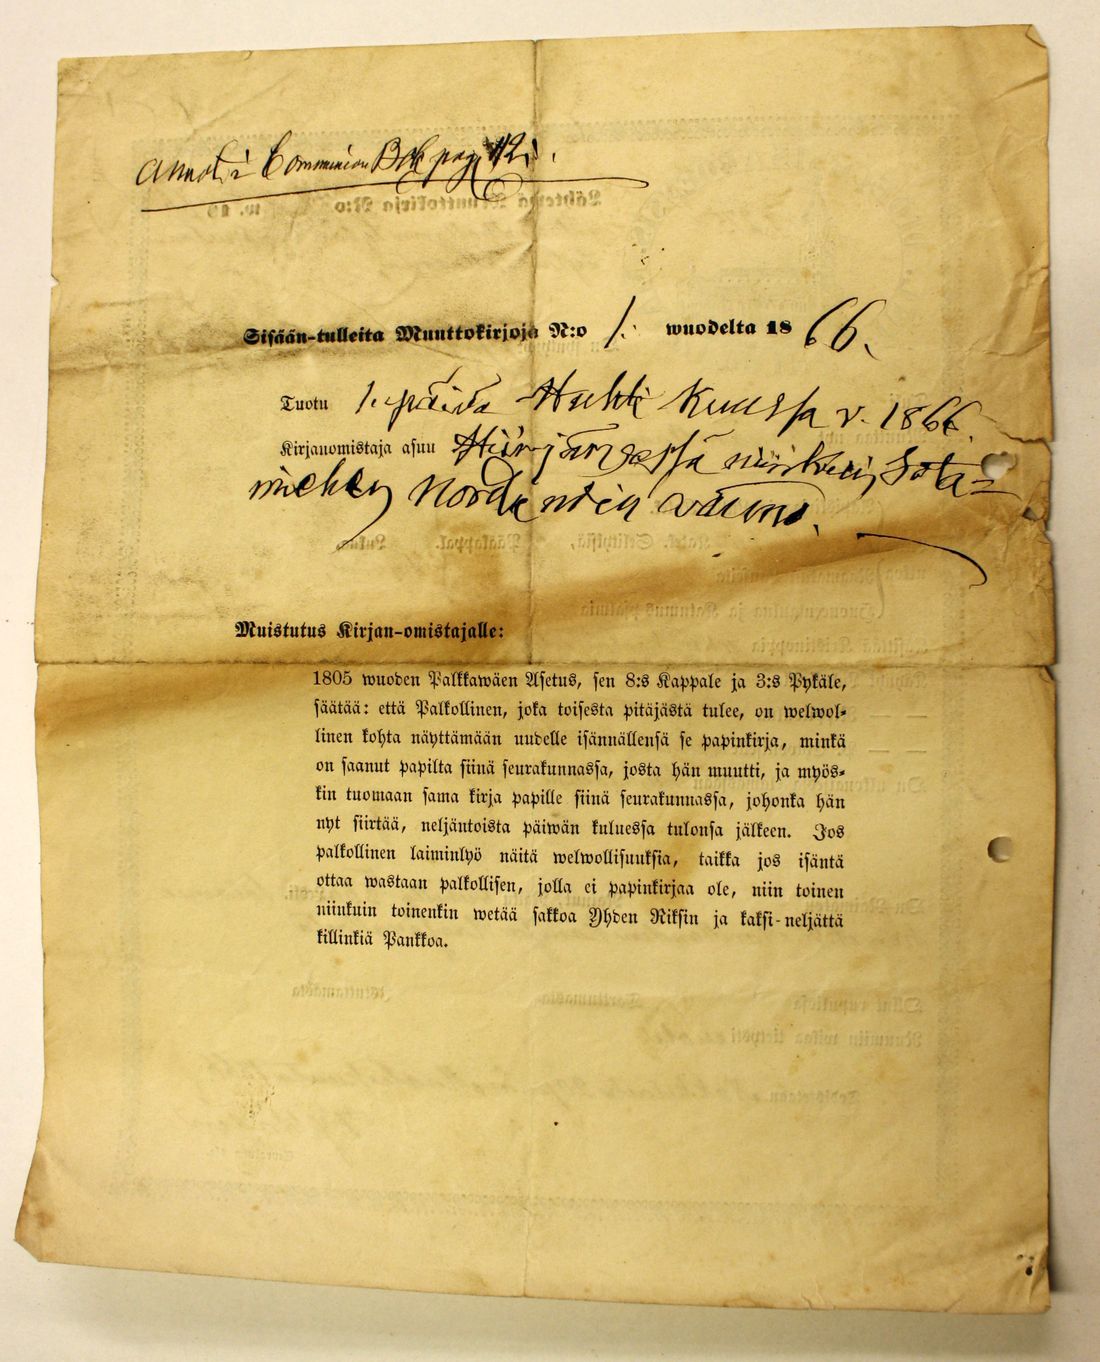 Annot. i Communion Bok pag 42.
Sisään-tulleita Muuttokirjoja N:o 1. wuodelta 1866.
Tuotu 1. päivä Huhti Kuussa v. 1866.
Kirjanomistaja asuu
miehen
Muistutus Kirjan-omistajalle:
1805 wuoden Palkkawäen Asetus, sen 8:s Kappale ja 3:s Pykäle,
säätää: että Palkollinen, joka toisesta pitäjästä tulee, on welwol-
linen kohta näyttämään uudelle isännällensä se papinkirja, minkä
on saanut papilta siinä seurakunnassa, josta hän muutti, ja myös-
kin tuomaan sama kirja papille siinä seurakunnassa, johonka hän
nyt siirtää, neljäntoista päiwän kuluessa tulonsa jälkeen. Jos
palkollinen laiminlyö näitä welwollisuuksia, taikka jos isäntä
ottaa wastaan palkollisen, jolla ei papinkirjaa ole, niin toinen
niinkuin toinenkin wetää sakkoa Yhden Riksin ja kaksi-neljättä
killinkiä Pankkoa.